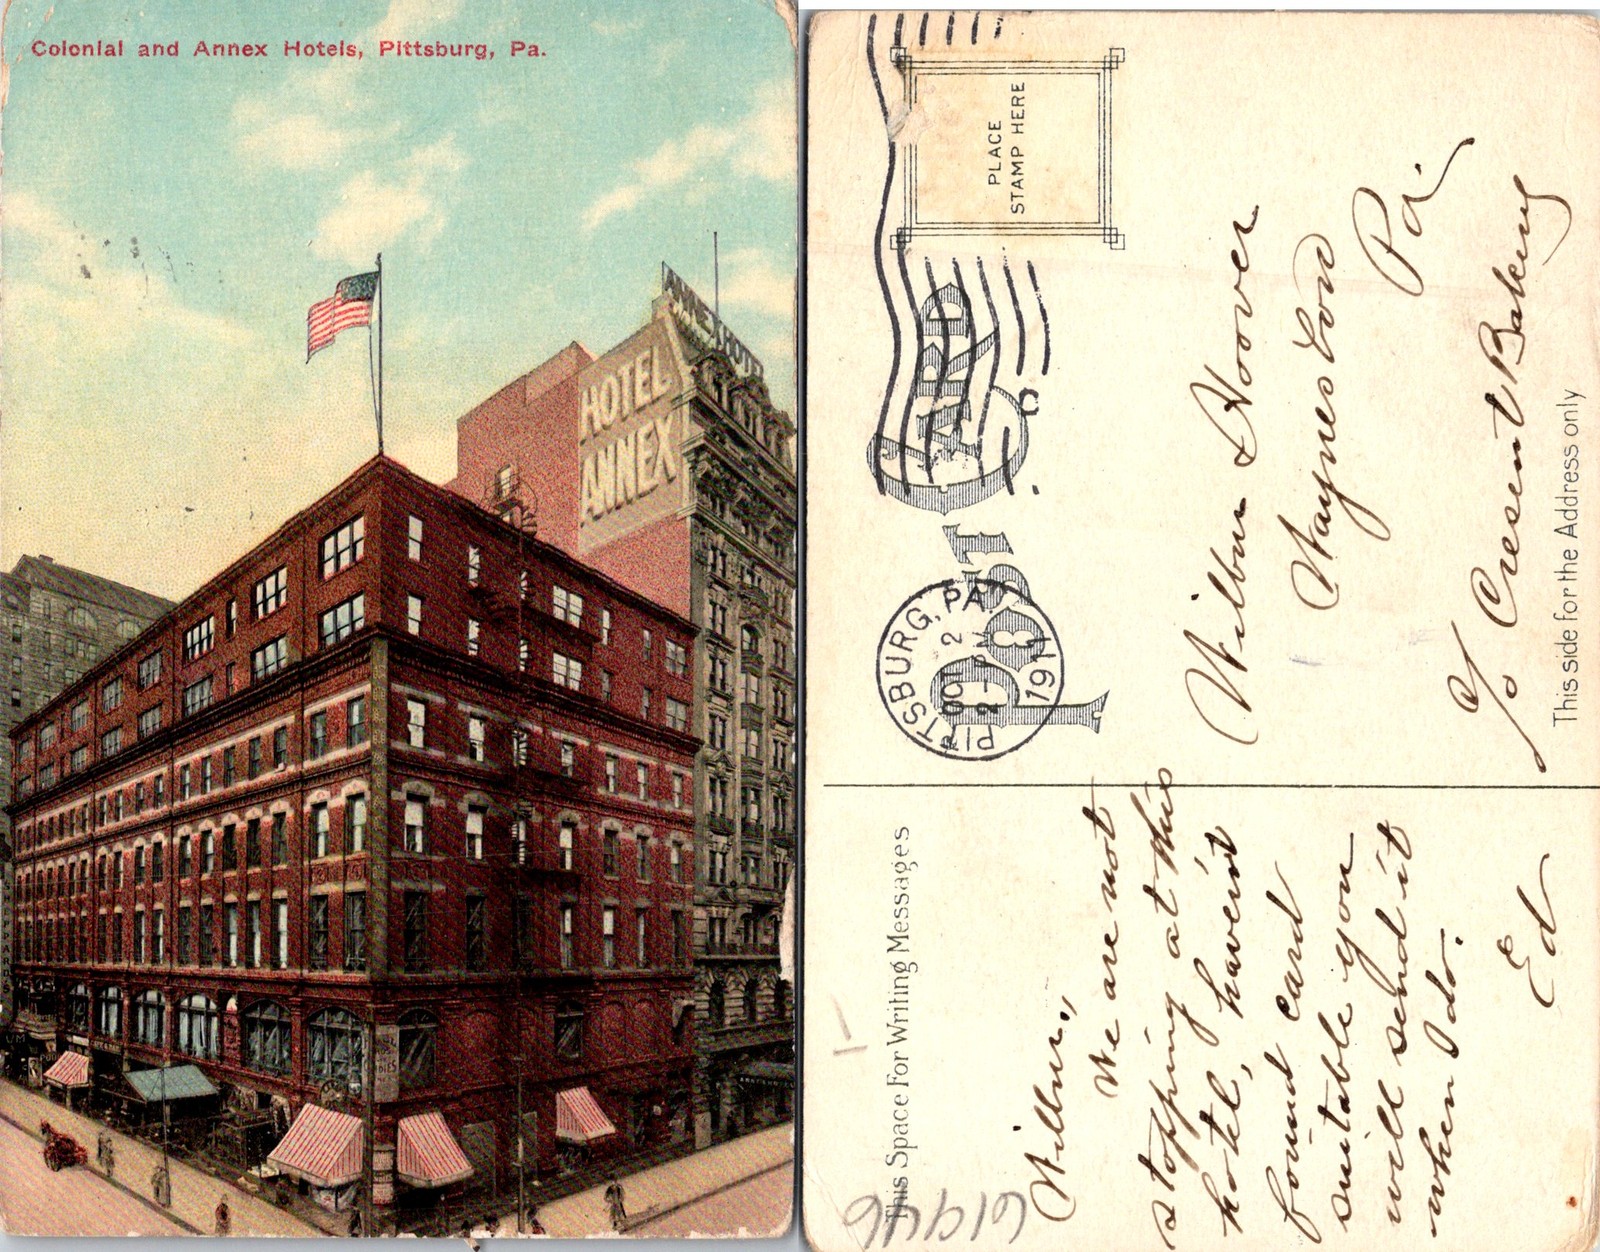 Colonial and Annex Hotels, Pittsburg, Pa.
ANNEX HOTEL
HOTEL
ANNEX
PLACE
STAMP HERE
POST CARD
PITTSBURG, PA.
OCT 2
2 - PM
1911
Wilbur Hoover
Waynes
Pa.
℅ Cresent Bakery
This side for the Address only
This Space For Writing Messages
61946
Wilbur,,
We are not
stopping at this
hotel, havent
found card
suitable you
will send it
when I do.
Ed